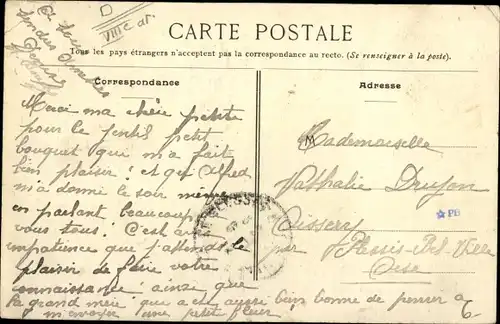 D
VIII e at.
CARTE POSTALE
Tous les pays étrangers n'acceptent pas la correspondance au recto. (Se renseigner à la poste).
Correspondance
Adresse
Merci ma chère petite
pour le gentil petit
bouquet qui m'a fait
bien plaisir! et qu'Alfred
m'a donné le soir même
en parlant beaucoup
vous tous! C'est avec
impatience que j'attends le
plaisir de faire votre
connaissance ainsi que
la grand mère qui a été aussi bien bonne de penser a
m'envoyer une petite fleur
Mademoiselle
Nathalie Druyon
Oissery
par Plessis-Bel-Ville
Oise
PB